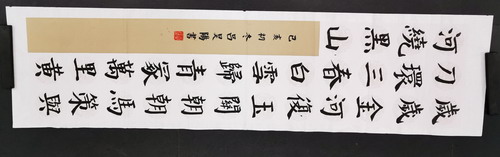 歲歲金河復玉關朝朝馬策與
刀環三春白雪歸青冢萬里黃
河繞黑山
己亥初冬呂昊陽書